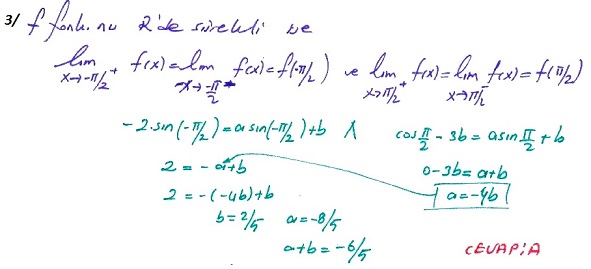 3/ f fonk.nu R'de sürekli ve
lim x→-π/2⁺ f(x)=lim x→-π/2⁻ f(x)=f(-π/2) ve lim x→π/2⁺ f(x)=lim x→π/2⁻ f(x)=f(π/2)
-2.sin(-π/2)=a sin(-π/2)+b ∧ cos π/2 - 3b = a sin π/2 + b
2 = -a+b 0-3b=a+b
2 = -(-4b)+b a=-4b
b=2/5 a=-8/5
a+b=-6/5 CEVAP:A